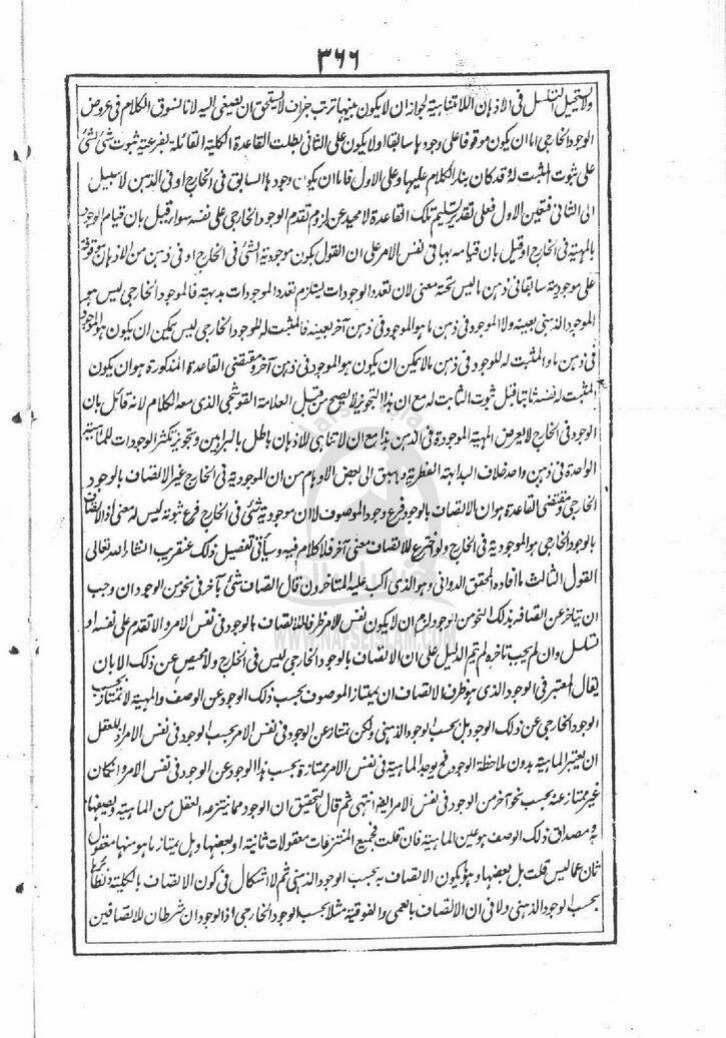 ٣٦٦
ولا يستحيل التسلسل فى الاذهان اللامتناهية لجواز ان لا يكون بينها ترتب جزاف لا يستحق ان يصغى اليه لانا نسوق الكلام فى عروض
الوجود الخارجى اما ان يكون موقوفا على وجودها سابقا اولا يكون على الثانى بطلت القاعدة الكلية القائلة بفرعية ثبوت شئ لشئ
على ثبوت المثبت له وقد كان بناء الكلام عليها وعلى الاول فاما ان يكون وجودها السابق فى الخارج او فى الذهن لا سبيل
الى الثانى فتعين الاول فعلى تقدير تسليم تلك القاعدة لا محيد عن لزوم تقدم الوجود الخارجى على نفسه سواء قيل بان قيام الوجود
بالمهية فى الخارج او قيل بان قيامه بها فى نفس الامر على ان القول بكون موجودية الشئ فى الخارج او فى ذهن من الاذهان موقوفة
على موجودية سابقا فى ذهن ما ليس تحته معنى لان تعدد الوجودات يستلزم تعدد الموجودات بديهة فالموجود الخارجى ليس هو
الموجود الذهنى بعينه ولا الموجود فى ذهن ما هو الموجود فى ذهن آخر بعينه فالمثبت له للوجود الخارجى ليس يمكن ان يكون هو الموجود
فى ذهن ما والمثبت له للوجود فى ذهن ما لا يمكن ان يكون هو الموجود فى ذهن آخر ومقتضى القاعدة المذكورة هو ان يكون
المثبت له نفسه ثابتا قبل ثبوت الثابت له مع ان هذا التجويز لا يصح من قبل العلامة القوشجى الذى معه الكلام لانه قائل بان
الوجود فى الخارج لا يعرض المهية الموجودة فى الذهن هذا مع ان لا تناهى الاذهان باطل بالبراهين وتجويز تكثر الوجودات للماهية
الواحدة فى ذهن واحد خلاف البداهة الفطرية وما يسبق الى بعض الاوهام من ان الموجودية فى الخارج غير الاتصاف بالوجود
الخارجى ومقتضى القاعدة هو ان الاتصاف بالوجود فرع وجود الموصوف لا ان موجودية شئ فى الخارج فرع ثبوته ليس له معنى اذ الاتصاف
بالوجود الخارجى هو الموجودية فى الخارج ولو اخترع للاتصاف معنى آخر فلا كلام فيه وسيأتى تفصيل ذلك عنقريب انشاء الله تعالى
القول الثالث ما افاده المحقق الدوانى وهو الذى اكب عليه المتاخرون قال اتصاف شئ بآخر فى نحو من الوجود ان وجب
ان يتاخر عن اتصافه بذلك النحو من الوجود لزم ان لا يكون نفس الامر ظرفا للاتصاف بالوجود فى نفس الامر والا تقدم على نفسه او
تسلسل وان لم يجب تاخره لم يتم الدليل على ان الاتصاف بالوجود الخارجى ليس فى الخارج ولا محيص عن ذلك الا بان
يقال المعتبر فى الوجود الذى هو ظرف الاتصاف ان يمتاز الموصوف بحسب ذلك الوجود عن الوصف والمهية لا تمتاز بحسب
الوجود الخارجى عن ذلك الوجود بل بحسب الوجود الذهنى ولكن تمتاز عن الوجود فى نفس الامر بحسب الوجود فى نفس الامر اذ للعقل
ان يعتبر الماهية بدون ملاحظة الوجود فح يوجد الماهية فى نفس الامر ممتازة بحسب هذا الوجود عن الوجود فى نفس الامر وان كان
غير ممتاز عنه بحسب نحو آخر من الوجود فى نفس الامر ايضا انتهى ثم قال التحقيق ان الوجود مما ينتزعه العقل من الماهية ويصفها
به ومصداق ذلك الوصف هو عين الماهية فان قلت فجميع المنتزعات معقولات ثانية او بعضها وبم يمتاز ما هو منها معقول
ثان عما ليس قلت بل بعضها وهو ما يكون الاتصاف به بحسب الوجود الذهنى ثم لا اشكال فى كون الاتصاف بالكلية ونظائرها
بحسب الوجود الذهنى ولا فى ان الاتصاف بالعمى والفوقية مثلا بحسب الوجود الخارجى اذ الوجودان شرطان للاتصافين
WWW.NAFSEISLAM.COM